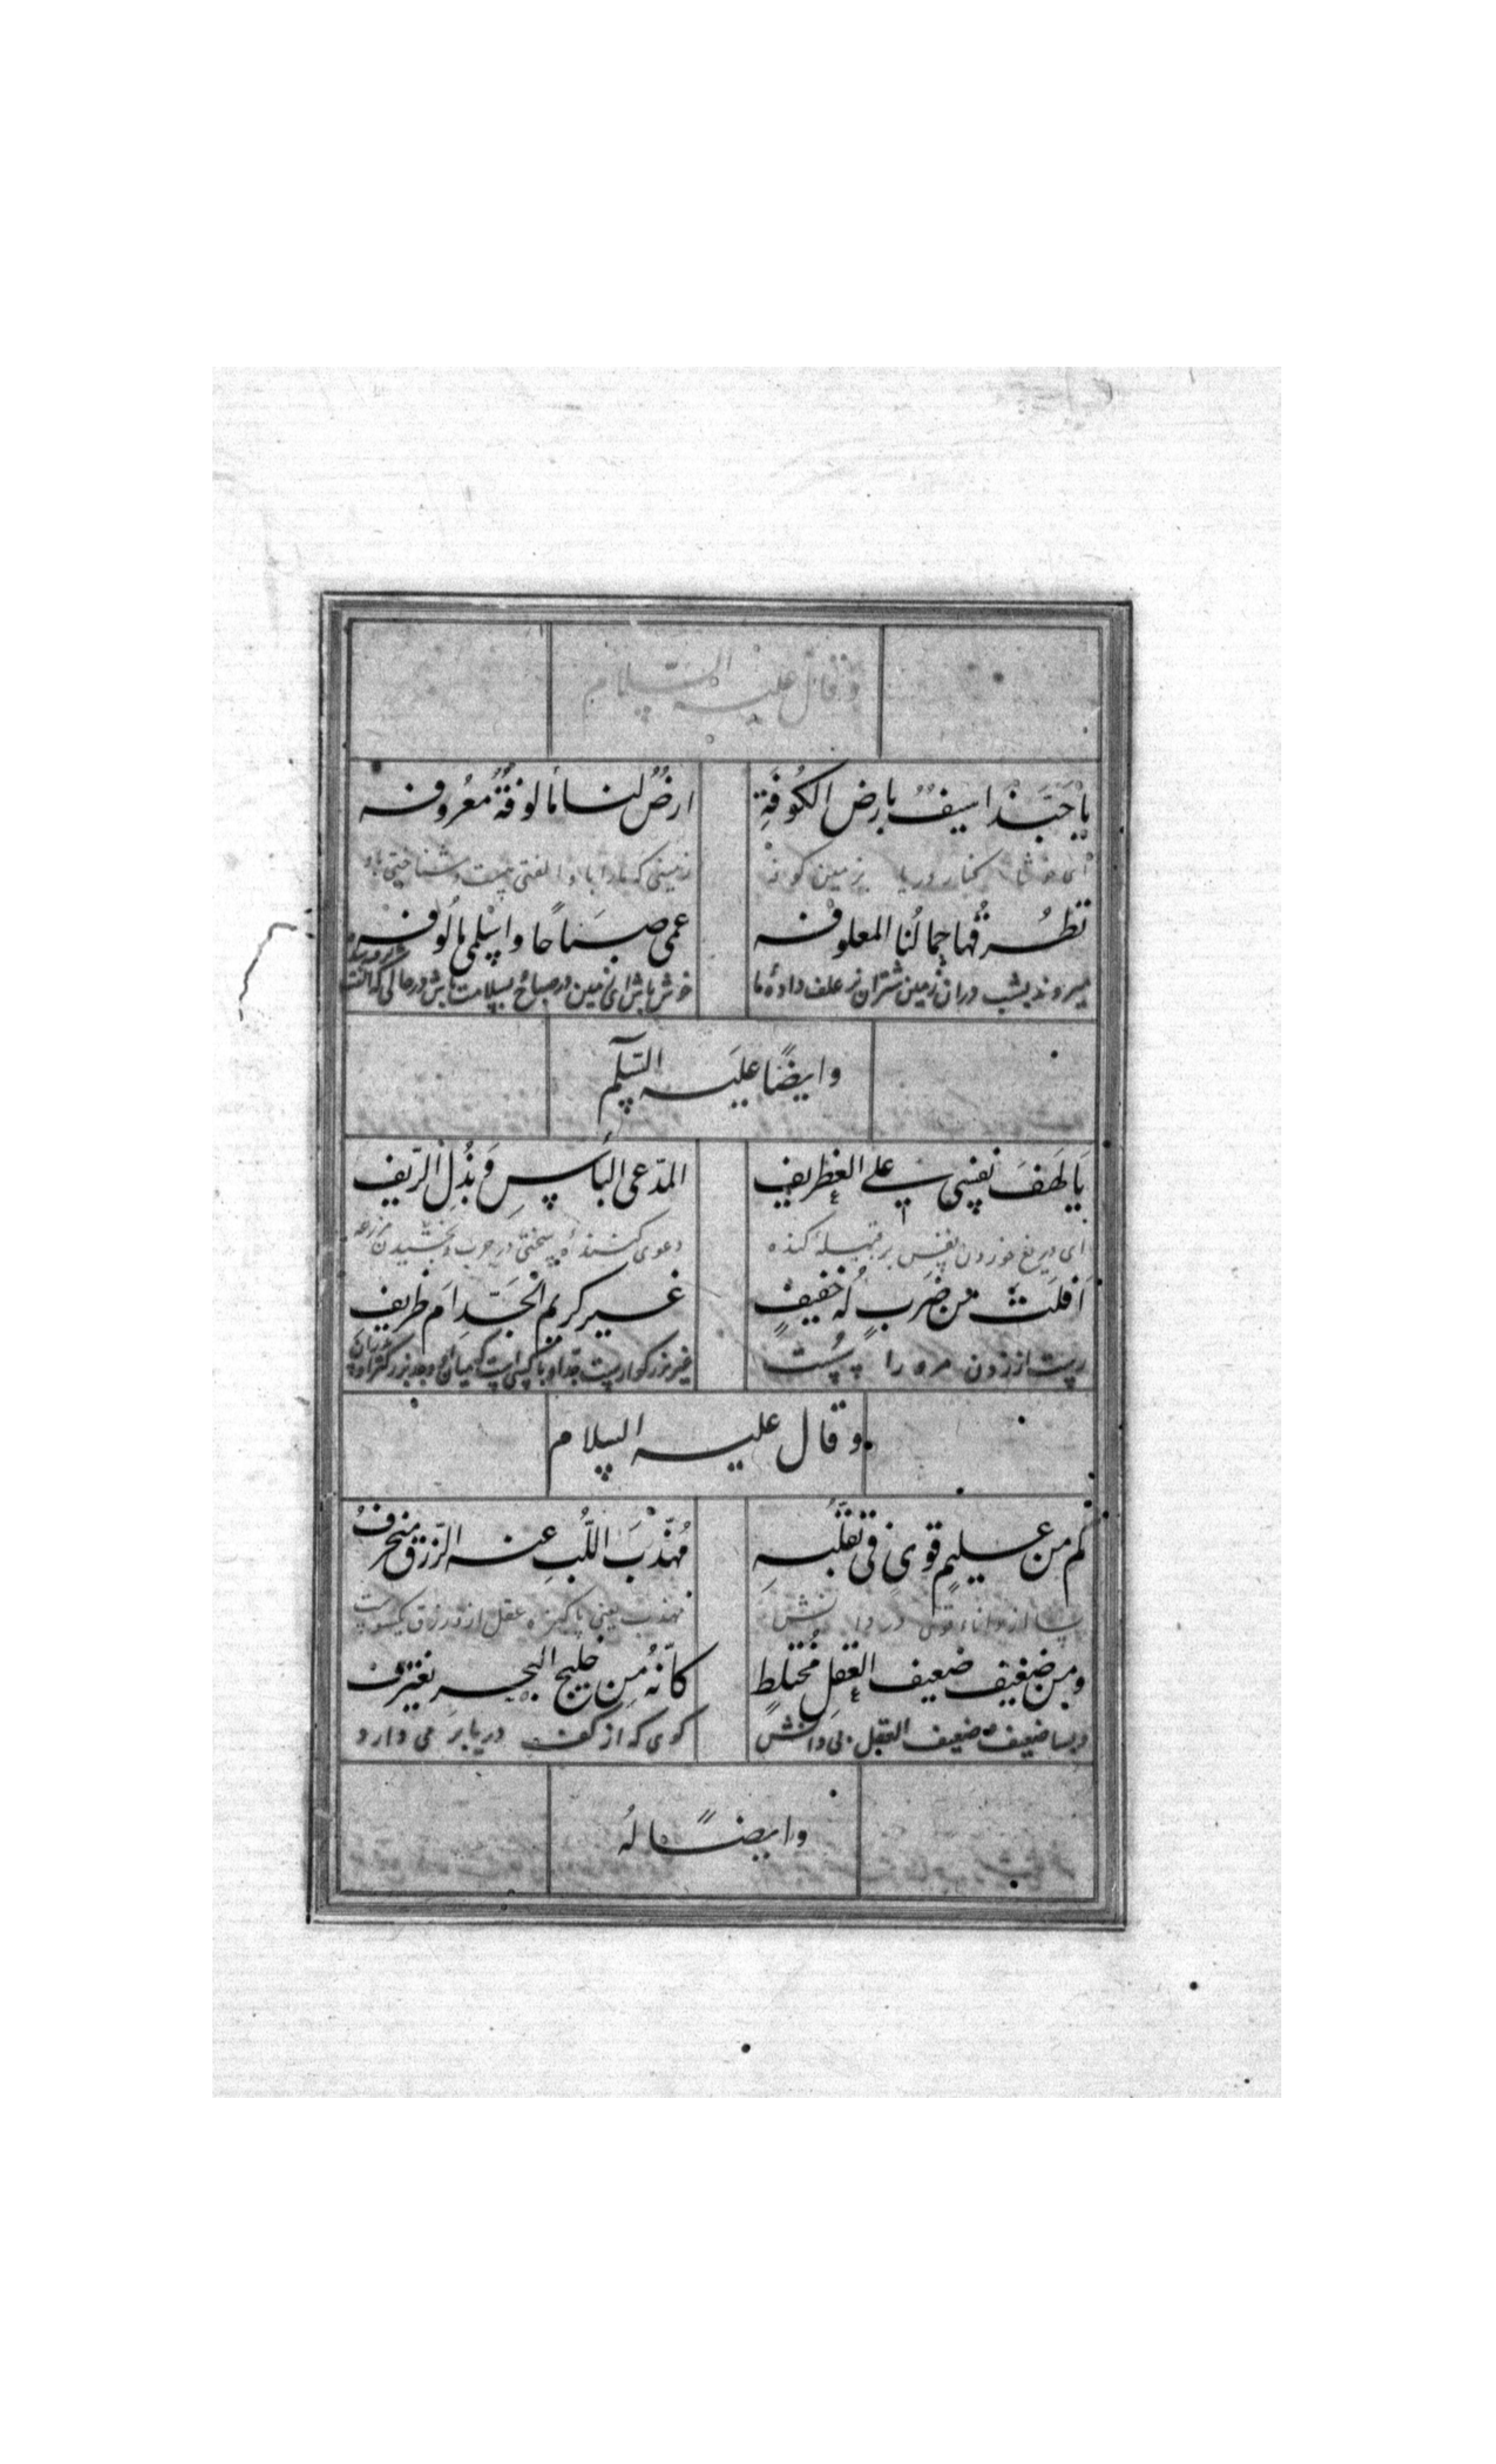 و قال علیه السّلام
یا حَبَّذا سیفٌ بارض الکُوفَةِ ارضٌ لنا مألوفةٌ معرُوفه
ای خوشا کنار دریا بزمین کوفه زمینی که مارا با او الفتی هست و شناختی با او
تطرُقُها جِمالُنا المعلوفه عمی صَباحًا واسلمی مألوفه
میروند بشب دران زمین شتران نر علف دادۀ ما خوش باش ای زمین در صباح بسلامت باش درحالی که الفت
وایضًا علیه السّلم
یا لَهفَ نفسی علی الغِطریف المدّعی البأسِ وَ بذُلِ الرّیف
ای دریغ خوردن نفس بر قبیله دعوی کنندۀ سختی در حرب و بخشیدن مزرعه
اَفلَتَ من ضَربٍ لَه خفیفٍ غیر کریم الجَدِّ ام ظریف
رست از زدن مرو را غیر بزرگوارست جد او
و قال علیه السلام
کم من علیمٍ قوی فی تقلّبهِ مُهذّبَ اللُّبِ عنه الرّزق منحرفُ
بسا از داناء قوی در دانش مهذب یعنی پاکیزه عقل ازو رزق یکسوست
ومِن ضعیف ضعیف العقلِ مُختلطٍ کأنّهُ مِن خلیج البحر یغترف
وبسا ضعیف ضعیف العقل بی دانش کوی که از کف دریا بر می دارد
وایضًا لهُ